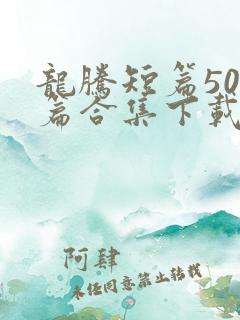 龍騰短篇50
篇合集下載
阿肆
未经同意禁止转载